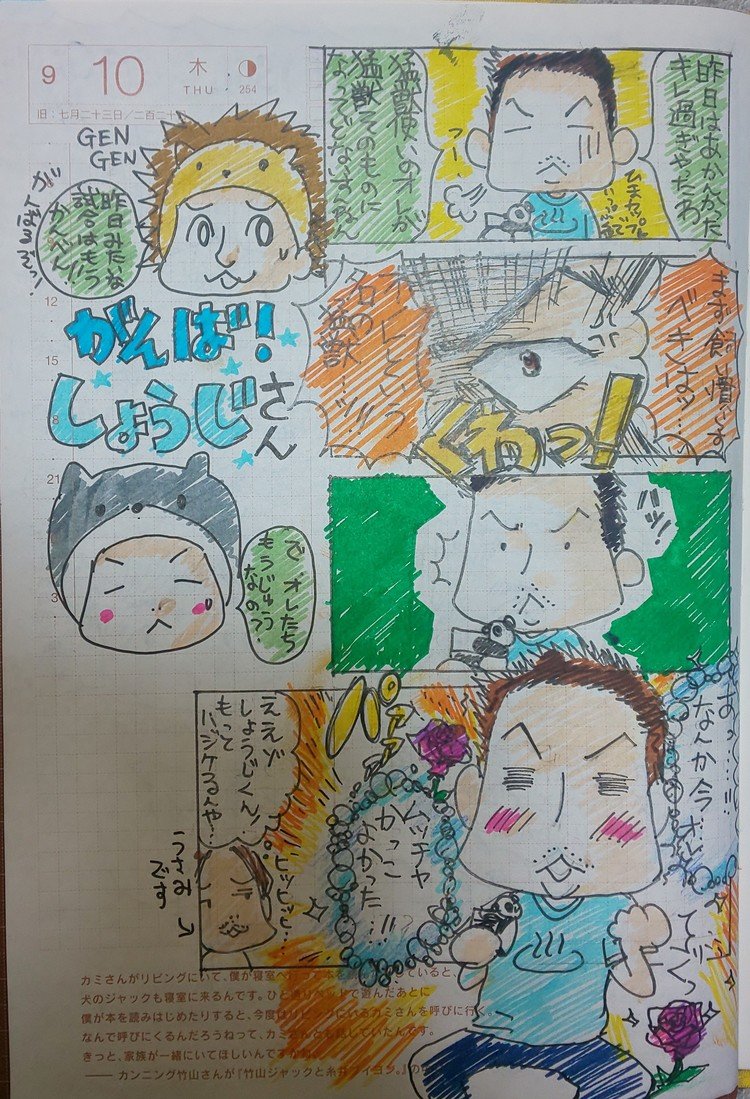 9
10
木
THU
254
旧:七月二十三日/二百二十日
GEN
GEN
昨日みたいな
試合はもう
かんべん!
がんば!
しょうじさん
12
15
21
3
で オレたち
もうじゅう
なの?
昨日はあかんかった
キレ過ぎやったわ
猛獣使いのオレが
猛獣そのものに
なってどないすんねん
フー
まず飼い慣らす
べきはッ…
オレという
名の
猛獣…ッ!!
くわっ!
ハッ
あっ…!!
なんか今 オレ
ムッチャ
かっこ
よかった…!!
パァァ
ええぞ
しょうじくん!
もって
ハジケるんや!
ヒッヒッヒ…
うさみ
です
カミさんがリビングにいて、僕が寝室へ
犬のジャックも寝室に来るんです。
僕が本を読みはじめたりすると、今度はリビングにいるカミさんを呼びに行く。
なんで呼びにくるんだろうねって、カミさんとお話していたんです。
きっと、家族が一緒にいてほしいんですかね。
—— カンニング竹山さんが『竹山ジャックと糸井ブイヨン。』の